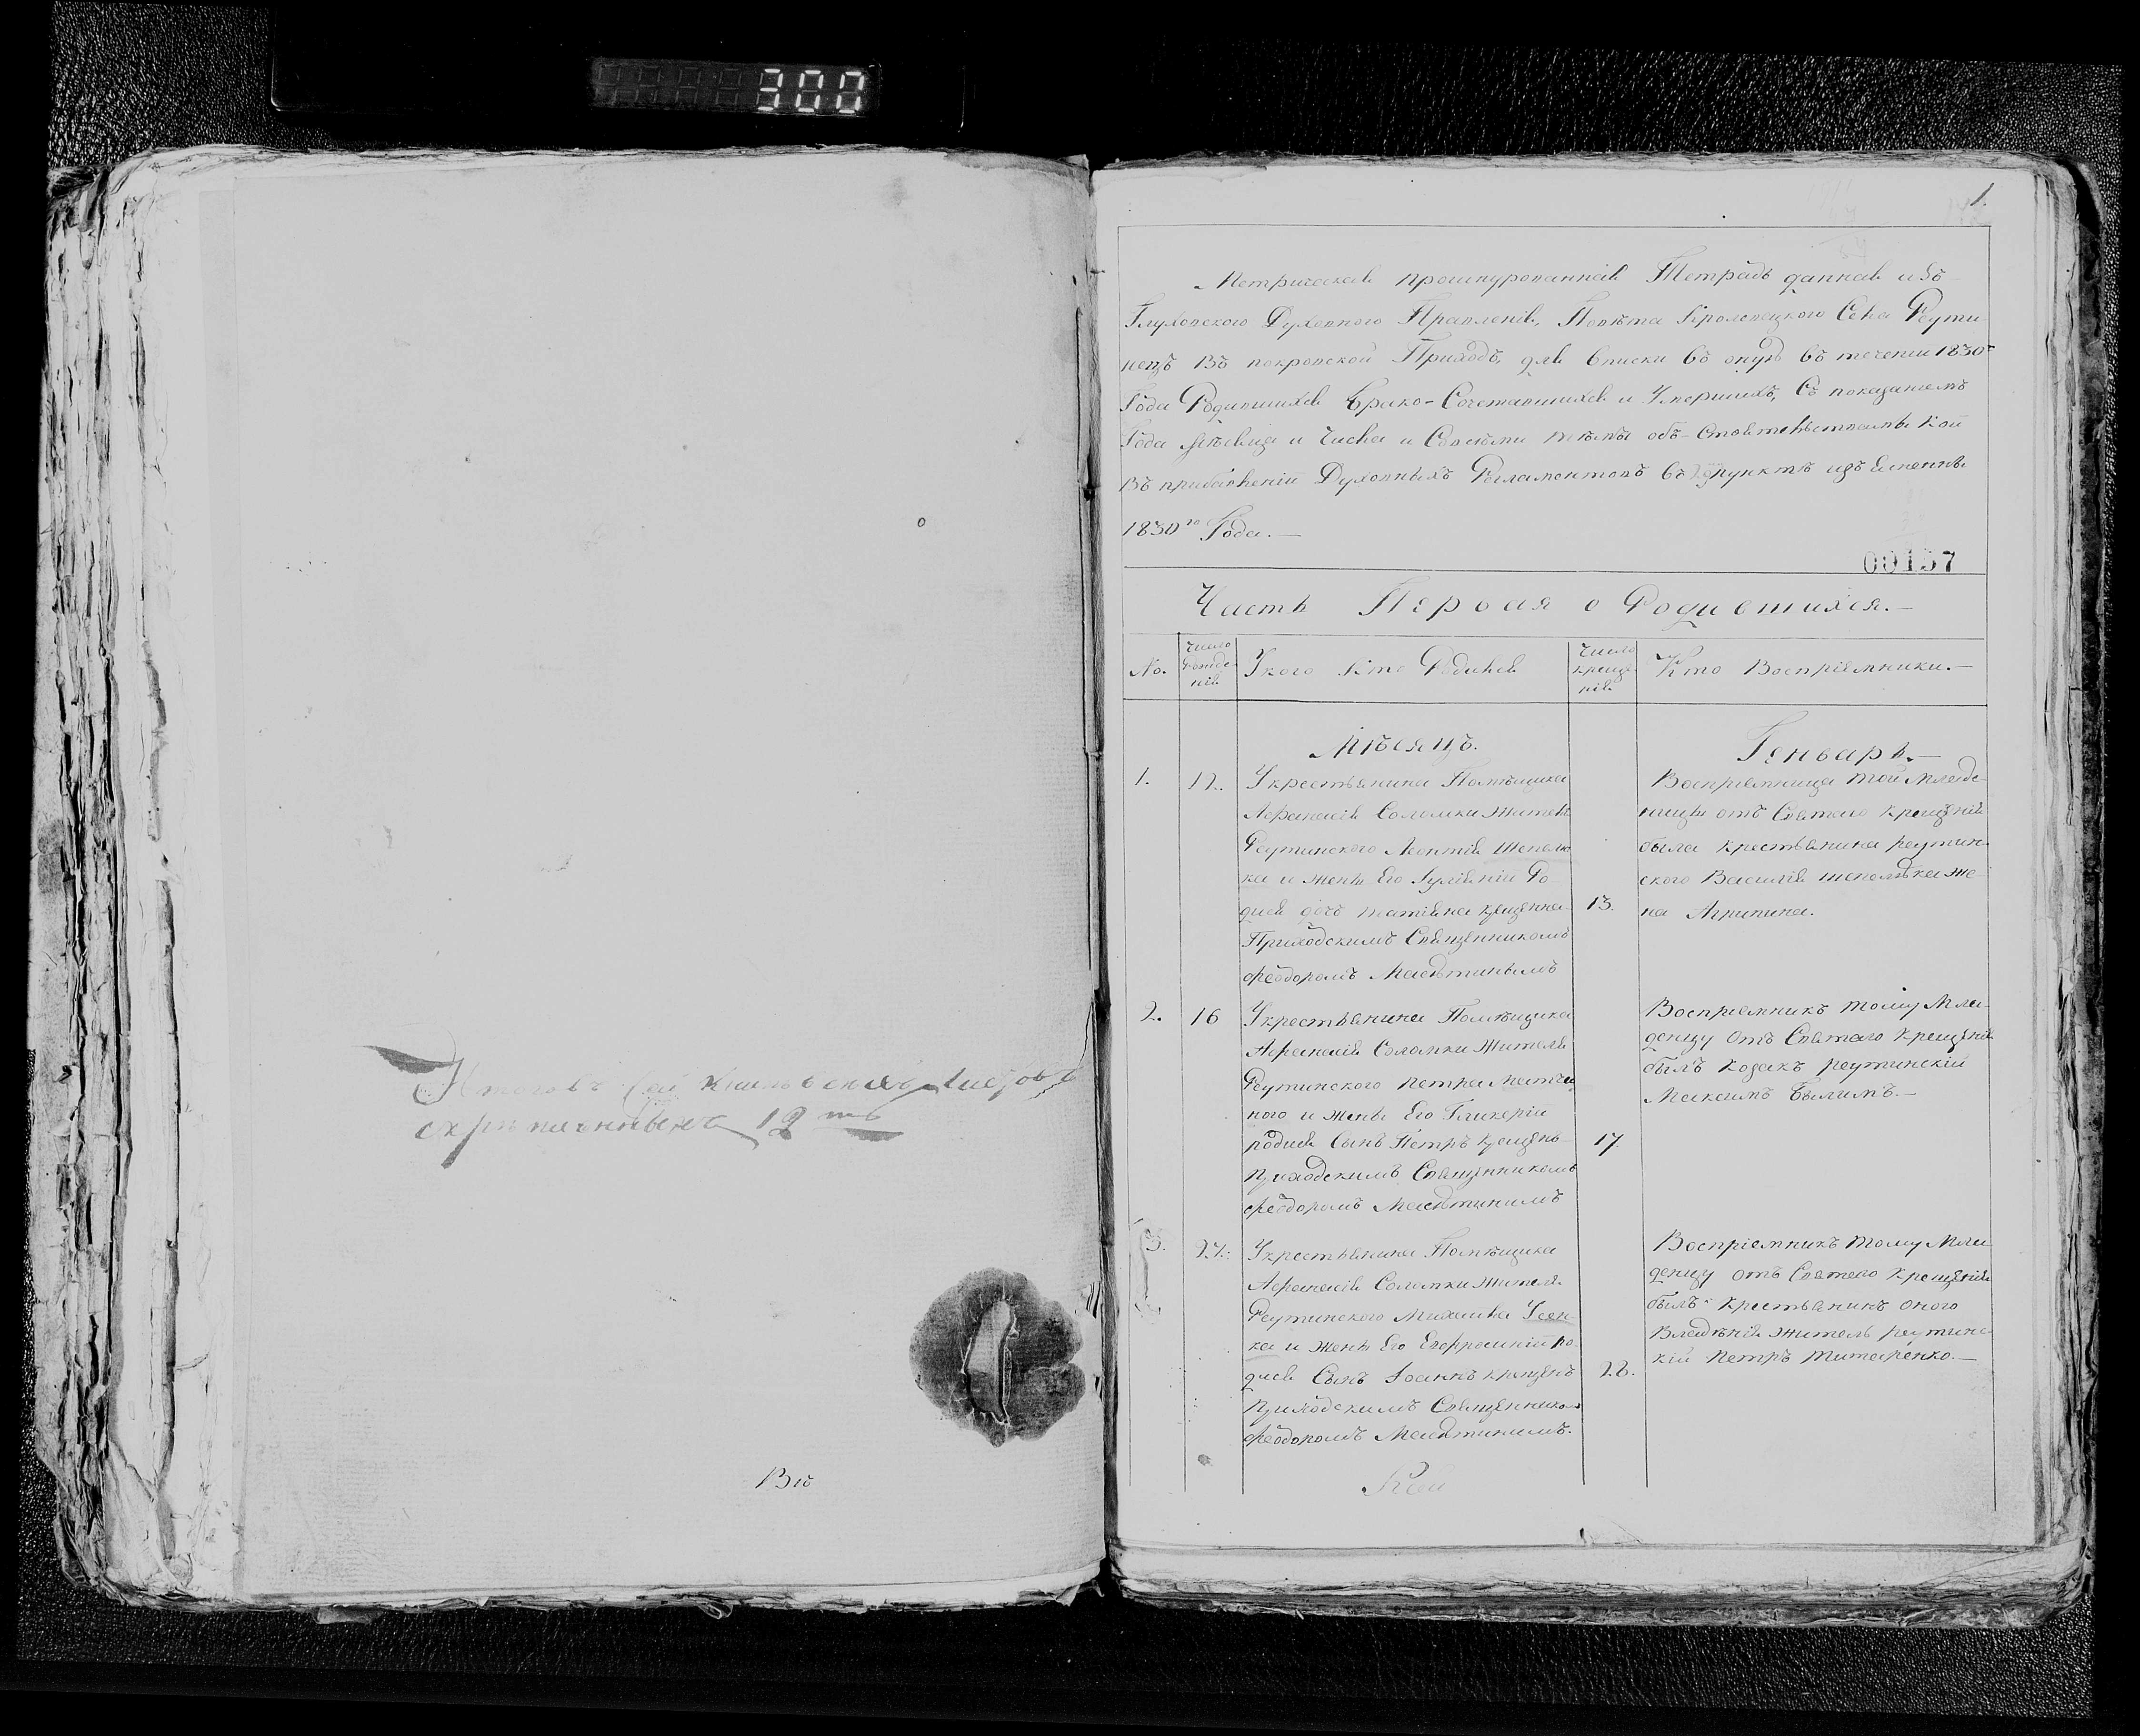 300
Итого въ сей книгѣ всѣхъ листовъ
скрѣпленныхъ 12ть
Въ
1.
Метрическая прошнурованная Тетрадь данная изъ
Глуховского Духовного Правленія, Повѣта Кролевецкого Села Реути-
нецъ Въ покровской Приходъ, для вписки въ оную въ теченіи 1830го
Года Родившихся Брако-Сочетавшихся и Умершихъ, Съ показаніемъ
Года Мѣсяца и Числа и Совсѣми тѣмы обстоятельствамы кои
Въ прибавленіи Духовныхъ Регламентовъ въ пунктѣ изъясненны
1830го Года.—
00157
Часть Первая о Родившихся.—
No.
Число рожде-
нія
У кого кто Родился
Число креще-
нія
Кто Восприемники.—
Мѣсяцъ.
Генварь.—
1.
12.
У крестьянина Помѣщика
Афанасія Соломки жителя
Реутинского Леонтія Шепелю
ка и жены Его Гуліяніи Ро-
дися дочь татіяна крещенна
Приходскимъ Священникомъ
Феодоромъ
13.
Восприемница той младе-
ницы отъ Святаго крещенія
была крестьянина реутин-
ского Василія шепелюка же-
на Агрипина.
2.
16
У крестьянина Помѣщика
Афанасія Соломки жителя
Реутинского Петра
ного и жены Его Гликеріи
родися Сынъ Петръ крещенъ
приходскимъ Священникомъ
Феодоромъ
17.
Восприемникъ тому мла-
денцу отъ Святаго крещенія
былъ козакъ реутинскій
Максимъ Былимъ.—
3.
27.
У крестьянина Помѣщика
Афанасія Соломки жителя
Реутинского Михаила Усен-
ка и жены Его Евфросиніи ро
дися Сынъ Іоаннъ крещенъ
приходскимъ Священником
Феодоромъ
28.
Восприемникъ тому мла
денцу отъ Святаго крещенія
былъ крестьянинъ оного
владѣнія житель реутинс-
кій Петръ титаренко.—